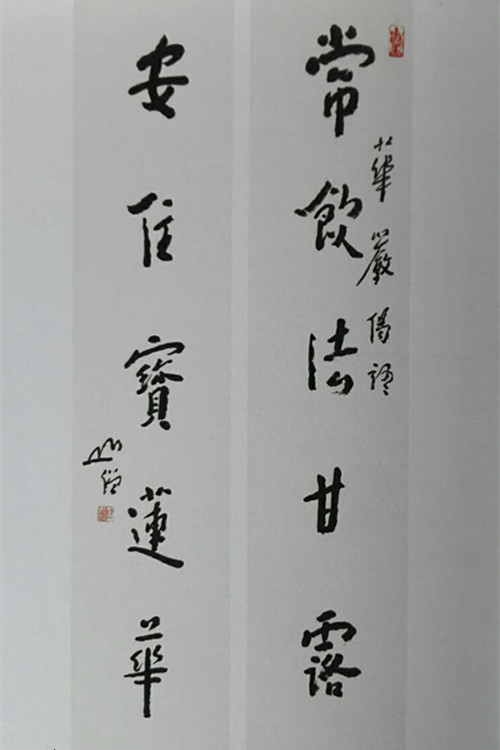 常飲法甘露
華嚴偈語
安住寶蓮華